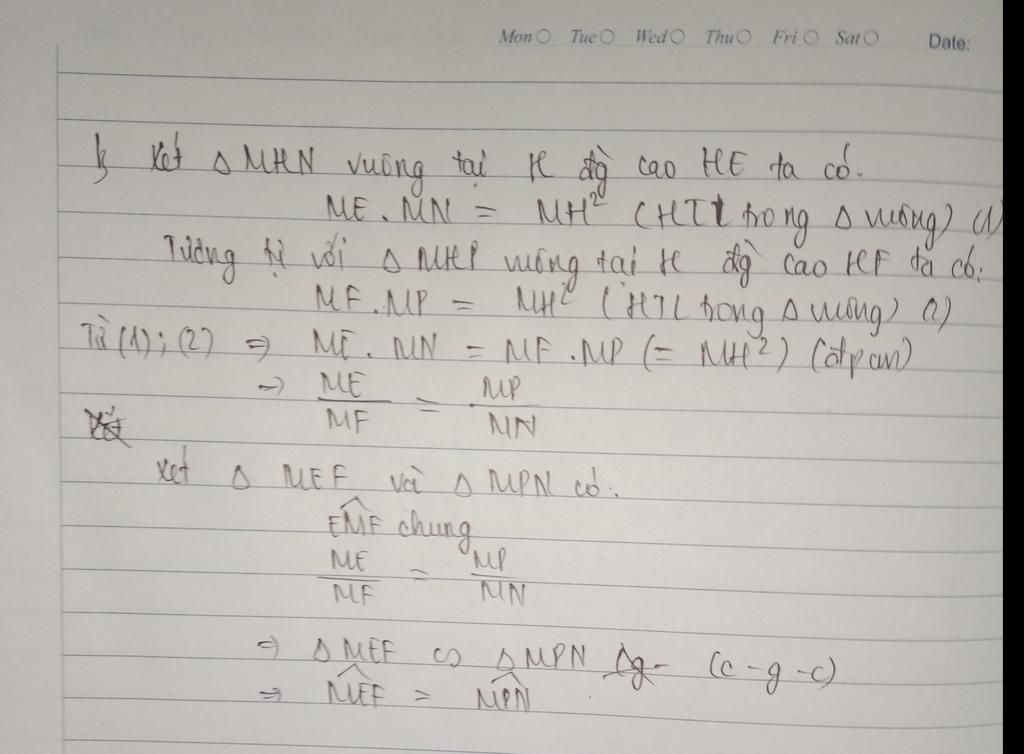 Mon Tue Wed Thu Fri Sat Date:
b, Xét Δ MHN vuông tại H đg cao HE ta có.
ME . MN = MH² (HTL trong Δ vuông) (1)
Tương tự với Δ MHP vuông tại H đg cao HF ta có:
MF . MP = MH² (HTL trong Δ vuông) (2)
Từ (1) ; (2) ⇒ ME . MN = MF . MP (= MH²) (đpcm)
⇒ ME/MF = MP/MN
Xét Δ MEF và Δ MPN có:
EMF chung
ME/MF = MP/MN
⇒ Δ MEF ∽ Δ MPN (c - g - c)
⇒ MEF = MPN